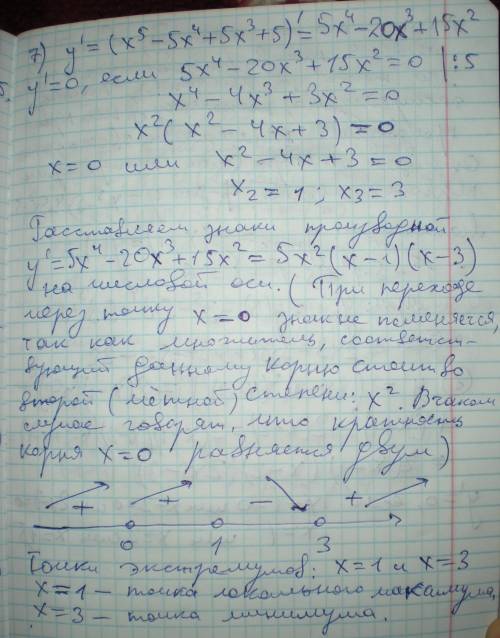 7) y' = (x⁵ - 5x⁴ + 5x³ + 5)' = 5x⁴ - 20x³ + 15x²
y' = 0, если 5x⁴ - 20x³ + 15x² = 0 |:5
x⁴ - 4x³ + 3x² = 0
x²(x² - 4x + 3) = 0
x = 0 или x² - 4x + 3 = 0
x₂ = 1; x₃ = 3
Расставляем знаки производной
y' = 5x⁴ - 20x³ + 15x² = 5x²(x - 1)(x - 3)
на числовой оси. (При переходе
через точку x = 0 знак не поменяется,
так как множитель, соответст-
вующий данному корню стоит во
второй (чётной) степени: x². В таком
случае говорят, что кратность
корня x = 0 равняется двум)
+ + - +
0 1 3
Точки экстремумов: x = 1 и x = 3
x = 1 – точка локального максимума,
x = 3 – точка минимума.